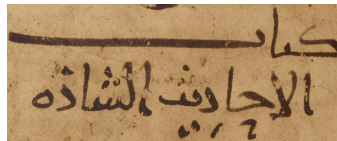 كتاب
الاحاديث الشاذه